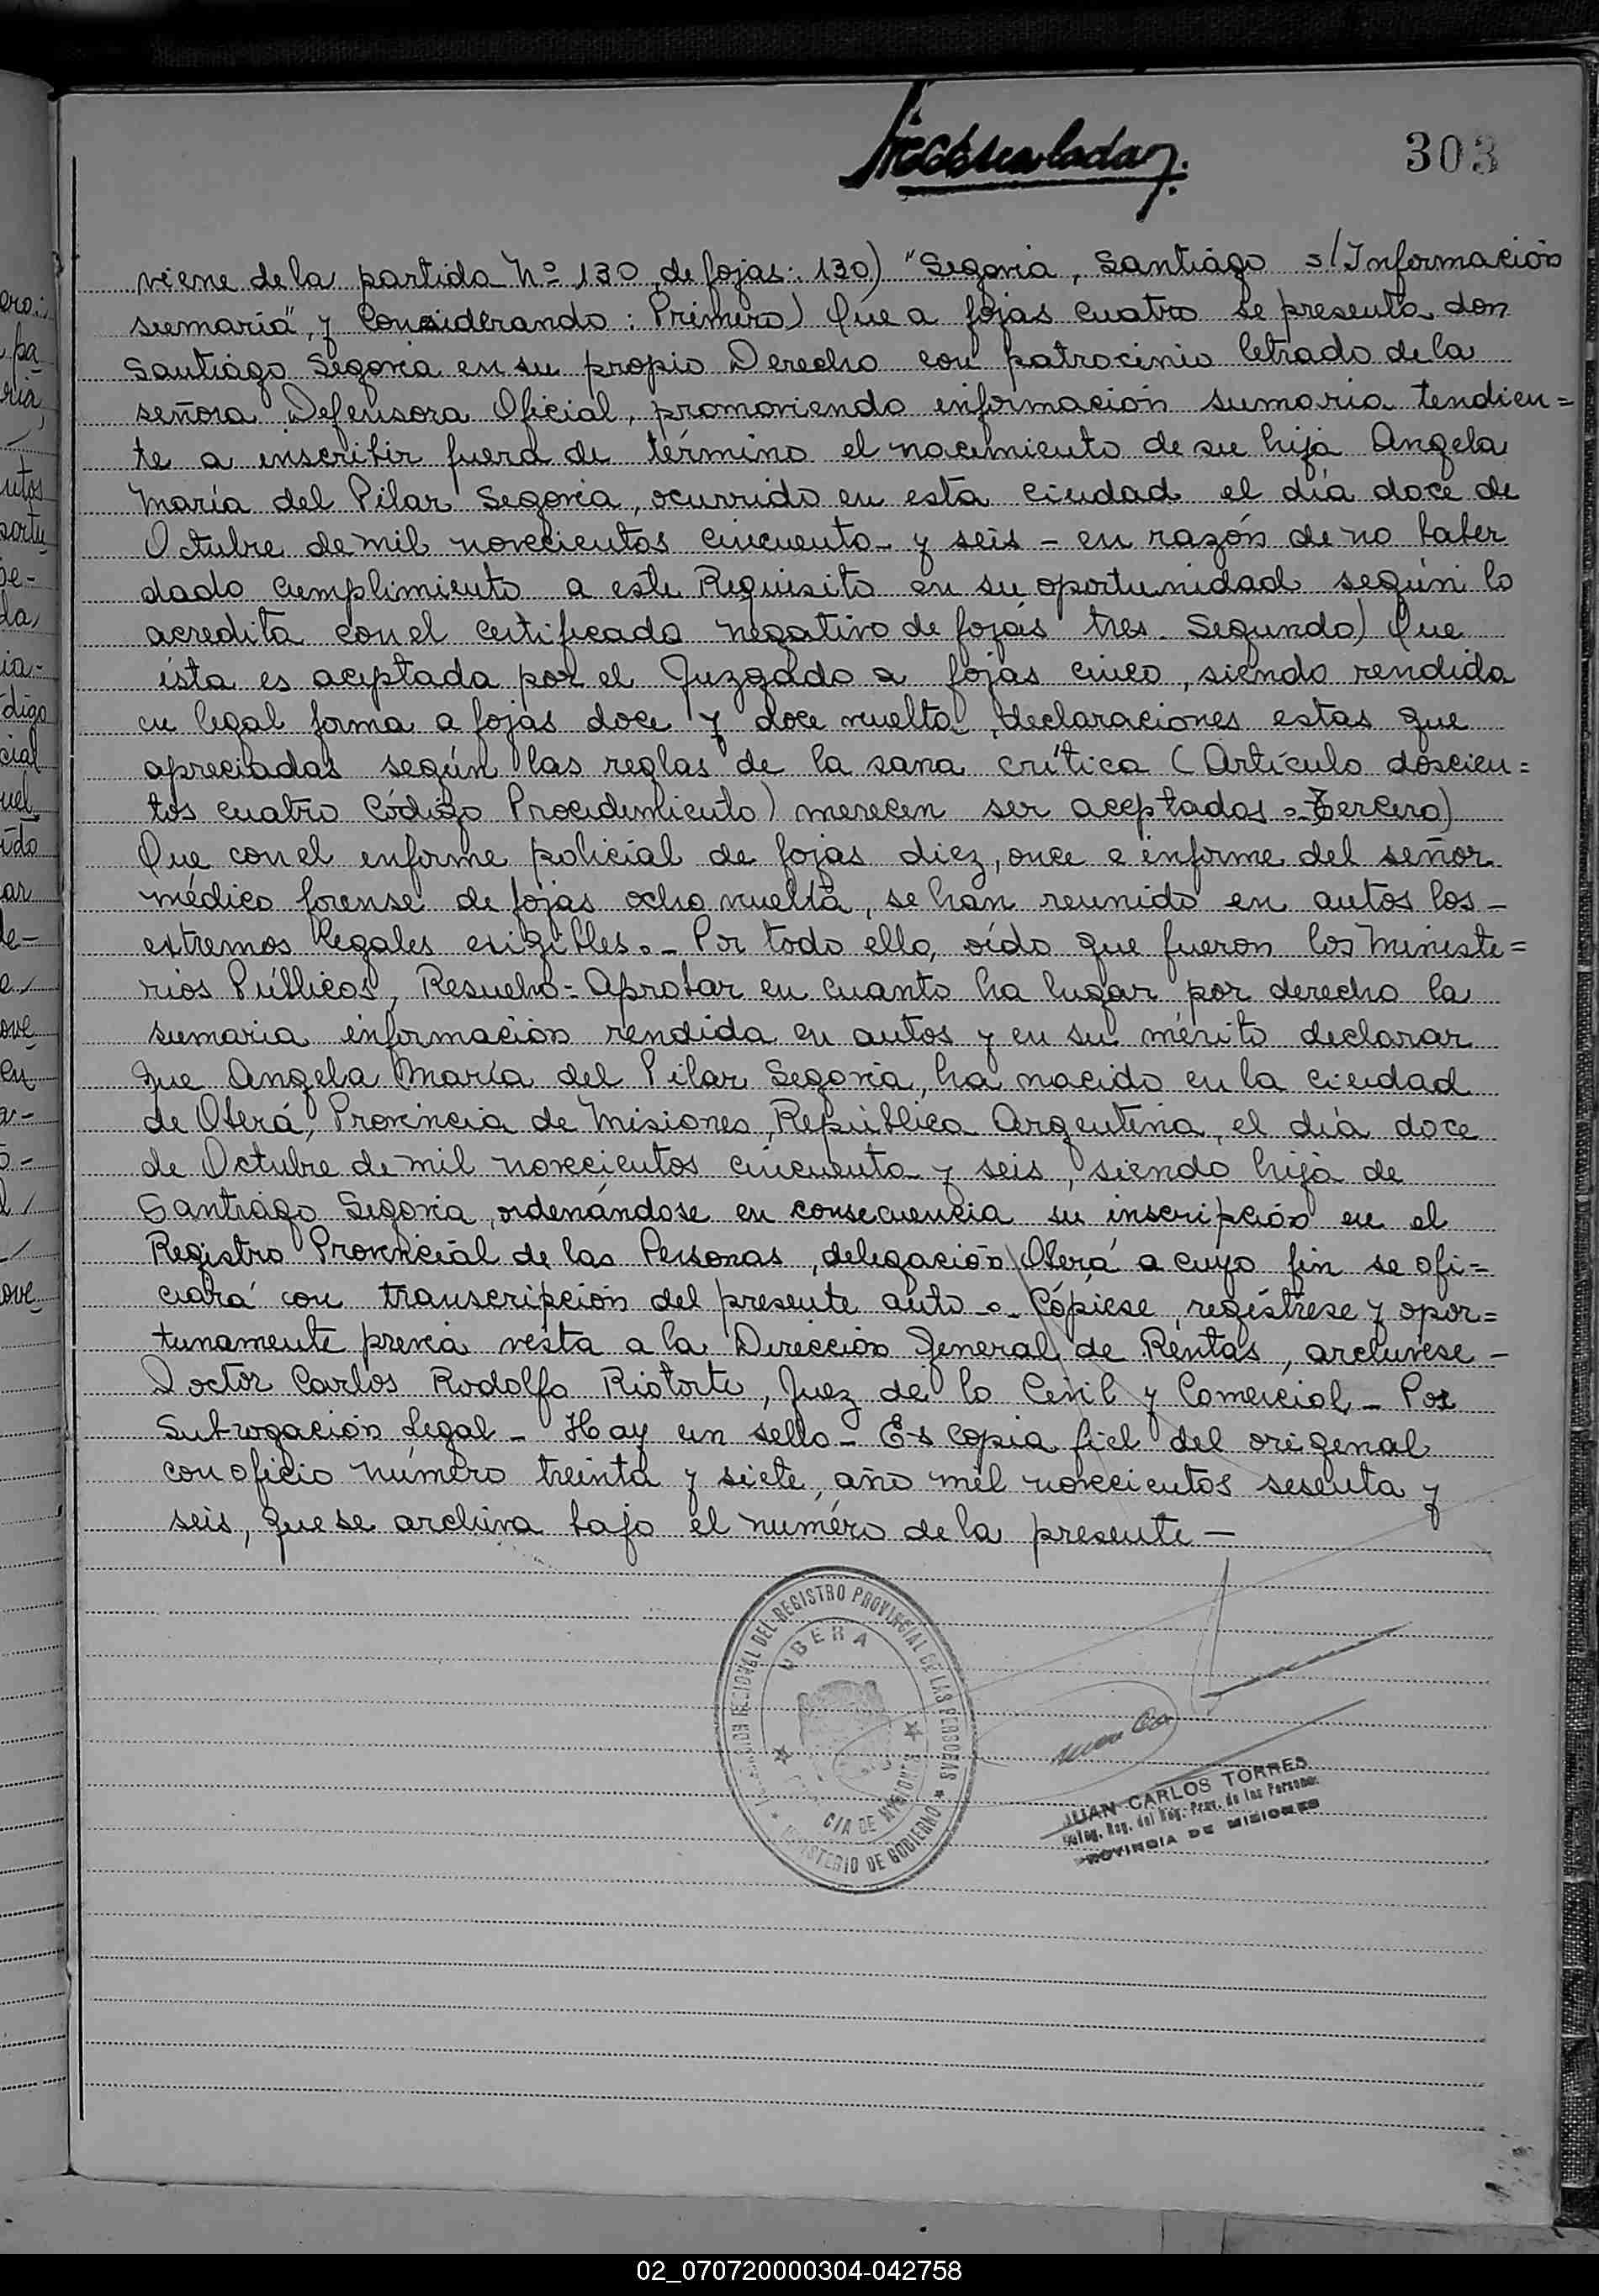 303
viene de la partida Nº 130, de fojas: 130) "Segovia, Santiágo s/Información
sumaria", y Considerando: Primero) Que a fojas cuatro se presenta don
Santiágo Segovia en su propio Derecho con patrocinio letrado de la
señora Defensora Oficial, promoviendo información sumaria tendien=
te a inscribir fuera de término el nacimiento de su hija Angela
María del Pilar Segovia, ocurrido en esta ciudad el día doce de
Octubre de mil novecientos cincuenta y seis - en razón de no haber
dado cumplimiento a este Requisito en su oportunidad según lo
acredita con el certificado negativo de fojas tres. Segundo) Que
ésta es aceptada por el Juzgado a fojas cinco, siendo rendida
en legal forma a fojas doce y doce vuelta, declaraciones estas que
apreciadas según las reglas de la sana crítica (Artículo doscien=
tos cuatro Código Procedimiento) merecen ser aceptadas.- Tercero)
Que con el informe policial de fojas diez, once e informe del señor
médico forense de fojas ocho vuelta, se han reunido en autos los -
extremos legales exigibles.- Por todo ello, oído que fueron los Ministe=
rios Públicos, Resuelvo= Aprobar en cuanto ha lugar por derecho la
sumaria información rendida en autos y en su mérito declarar
que Angela María del Pilar Segovia, ha nacido en la ciudad
de Oberá, Provincia de Misiones, República Argentina, el día doce
de Octubre de mil novecientos cincuenta y seis, siendo hija de
Santiágo Segovia, ordenándose en consecuencia su inscripción en el
Registro Provincial de las Personas, delegación Oberá a cuyo fin se ofi=
ciará con transcripción del presente auto.- Cópiese, regístrese y opor=
tunamente previa vista a la Dirección General de Rentas, archivese -
Doctor Carlos Rodolfo Riotorto, Juez de lo Civil y Comercial - Por
Subrogación Legal - Hay un sello - Es copia fiel del original
con oficio número treinta y siete, año mil novecientos sesenta y
seis, que se archiva bajo el numéro de la presente -
REGIONAL DEL REGISTRO PROVINCIAL DE LAS PERSONAS
OBERA
CIA DE MISIONES
MINISTERIO DE GOBIERNO
JUAN CARLOS TORRES
Deleg. Reg. del Reg. Prov. de las Personas
PROVINCIA DE MISIONES
02_070720000304-042758